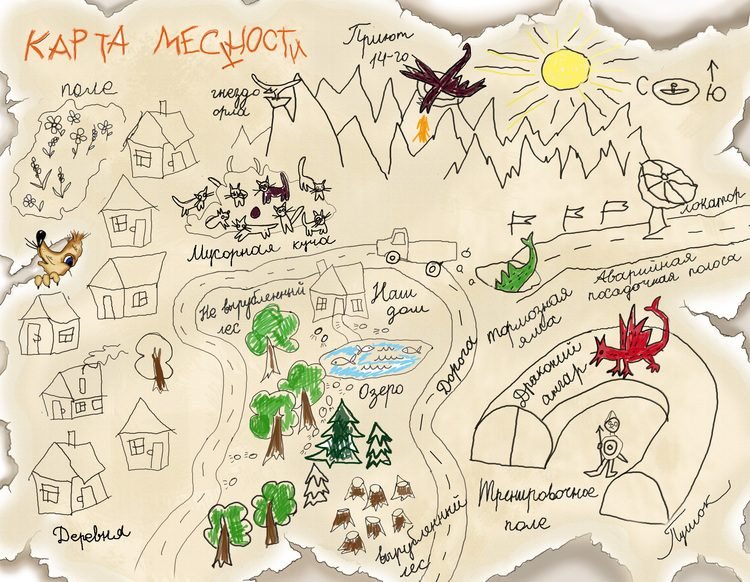 КАРТА МЕСНОСТИ
Приют
14-го
поле
гнездо
орла
С
Ю
локатор
Мусорная куча
Не вырубленный
лес
Наш
дом
Аварийная
посадочная полоса
Тормозная
яма
Дорога
Драконий
ангар
Озеро
Тренировочное
поле
Пушок
вырубленный
лес
Деревня